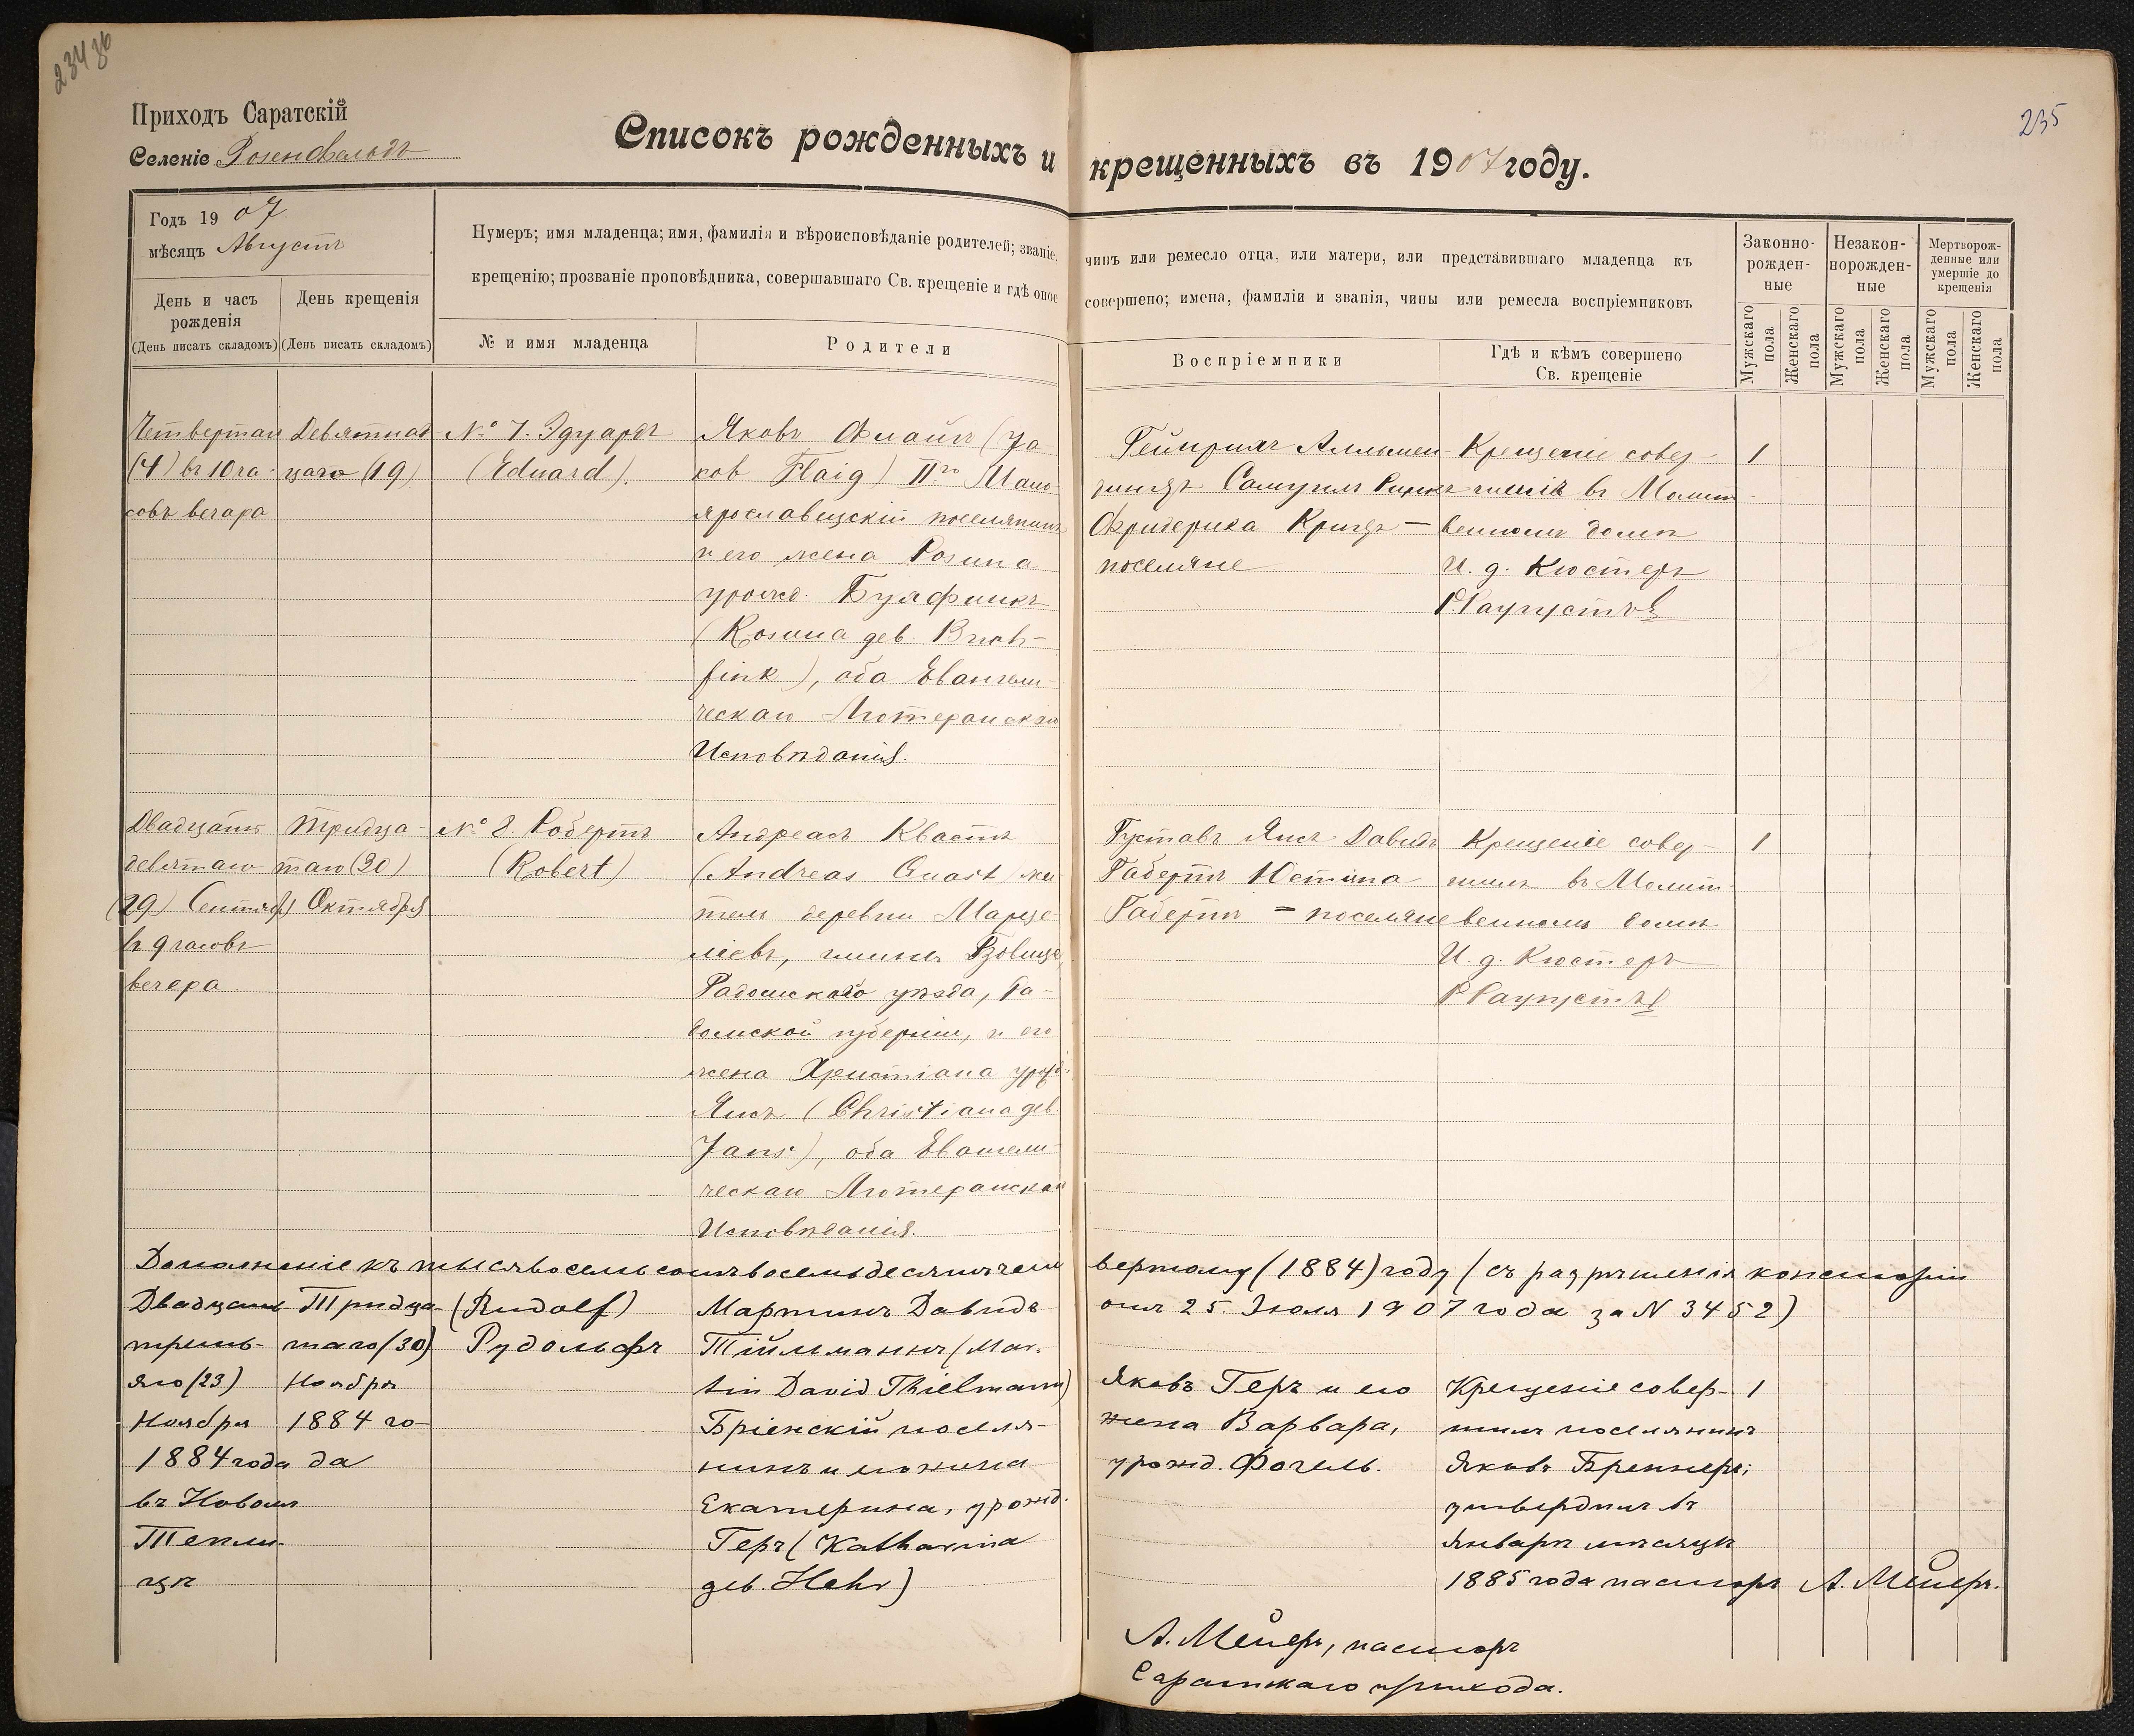 234 об
235
Приходъ Саратскій
Селеніе Розенфельдъ
Списокъ рожденныхъ и крещенныхъ въ 1907 году.
Годъ 1907
мѣсяцъ Августъ
День и часъ рожденія
(День писать складомъ)
День крещенія
(День писать складомъ)
Нумеръ; имя младенца; имя, фамилія и вѣроисповѣданіе родителей; званіе, чинъ или ремесло отца, или матери, или представившаго младенца къ
крещенію; прозваніе проповѣдника, совершавшаго Св. крещеніе и гдѣ оное совершено; имена, фамиліи и званія, чины или ремесла воспріемниковъ
№ и имя младенца
Родители
Воспріемники
Гдѣ и кѣмъ совершено
Св. крещеніе
Законно-
рожден-
ные
Незакон-
норожден-
ные
Мертворож-
денные или
умершіе до
крещенія
Мужскаго пола
Женскаго пола
Мужскаго пола
Женскаго пола
Мужскаго пола
Женскаго пола
Четвертаго
(4) въ 10 ча-
совъ вечера
Девятнад
цаго (19)
№ 7. Эдуардъ
(Eduard).
Яковъ Флайгъ (Ja-
kob Flaig) IIго Мало
ярославецскій поселянинъ
и его жена Розина
урожд. Бухфинкъ
(Rosina дев. Buch-
fink), оба Евангели-
ческаго Лютеранскаго
Исповѣданія.
Гейнрихъ
Самуилъ
Фридерика —
поселяне
Крещеніе совер-
шилъ въ Молит-
венномъ домѣ
И. д. Кюстеръ
Р. Раугустъ
1
Двадцать
девятаго
(29) Сентября
въ 9 часовъ
вечера
Тридца-
таго (30)
Октября
№ 8. Робертъ
(Robert)
Андреасъ Квастъ
(Andreas Quast) жи
тель деревни
гмины
Радомскаго уѣзда, Ра-
домской губерніи, и его
жена Христіана урожд.
Янсъ (Christiana дев.
Jans), оба Евангели-
ческаго Лютеранскаго
Исповѣданія.
Густавъ Янсъ Давидъ
Габертъ Юстина
Габертъ = поселяне
Крещеніе совер-
шилъ въ Молит-
венномъ домѣ
И. д. Кюстеръ
Р. Раугустъ
1
Дополненіе къ тысяча восемьсотъ восемьдесятъ чет вертому (1884) году (съ разрѣшенія консисторіи
отъ 25 Іюля 1907 года за N 3452)
Двадцать
треть-
яго (23)
Ноября
1884 года
въ Новомъ
Тепли-
цѣ
Тридца-
таго (30)
Ноября
1884 го-
да
(Rudolf)
Рудольфъ
Мартинъ Давидъ
Тільманнъ (Mar-
tin David Thielmann)
Бріенскій поселя-
нинъ и его жена
Екатерина, урожд.
Геръ (Katharina
дев. Hehr)
Яковъ Геръ и его
жена Варвара,
урожд. Фогель.
Крещеніе совер-
шилъ поселянинъ
Яковъ Бреннеръ;
утвердилъ въ
Январѣ мѣсяцѣ
1885 года пасторъ А. Мейеръ.
1
А. Мейеръ, пасторъ
Саратскаго прихода.